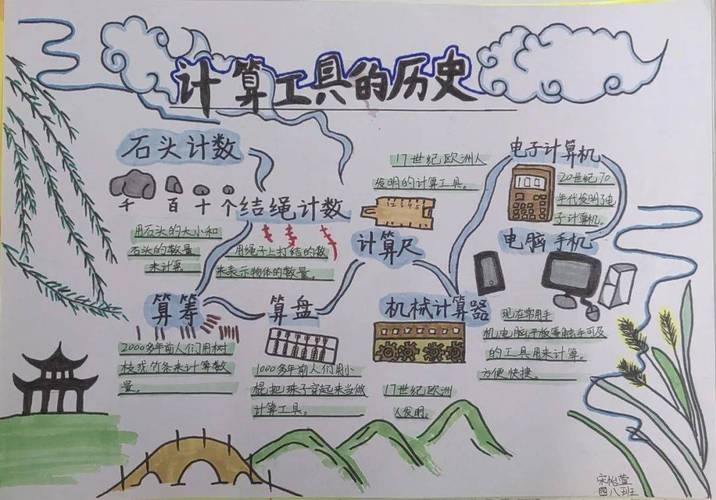 计算工具的历史
石头计数
千 百 十 个
用石头的大小和
石头的数量
来计算
结绳计数
用绳子上打结的数
来表示物体的数量。
算筹
2000多年前人们用树
枝或竹条来计算数
量。
算盘
1000多年前人们用小
棍把珠子穿起来当做
计算工具。
17世纪欧洲人
发明的计算工具。
计算尺
机械计算器
17世纪欧洲
人发明。
电子计算机
20世纪70
年代发明电
子计算机。
电脑 手机
现在常用手
机电脑平板等触手可及
的工具用来计算。
方便快捷。
宋怡萱
四八班